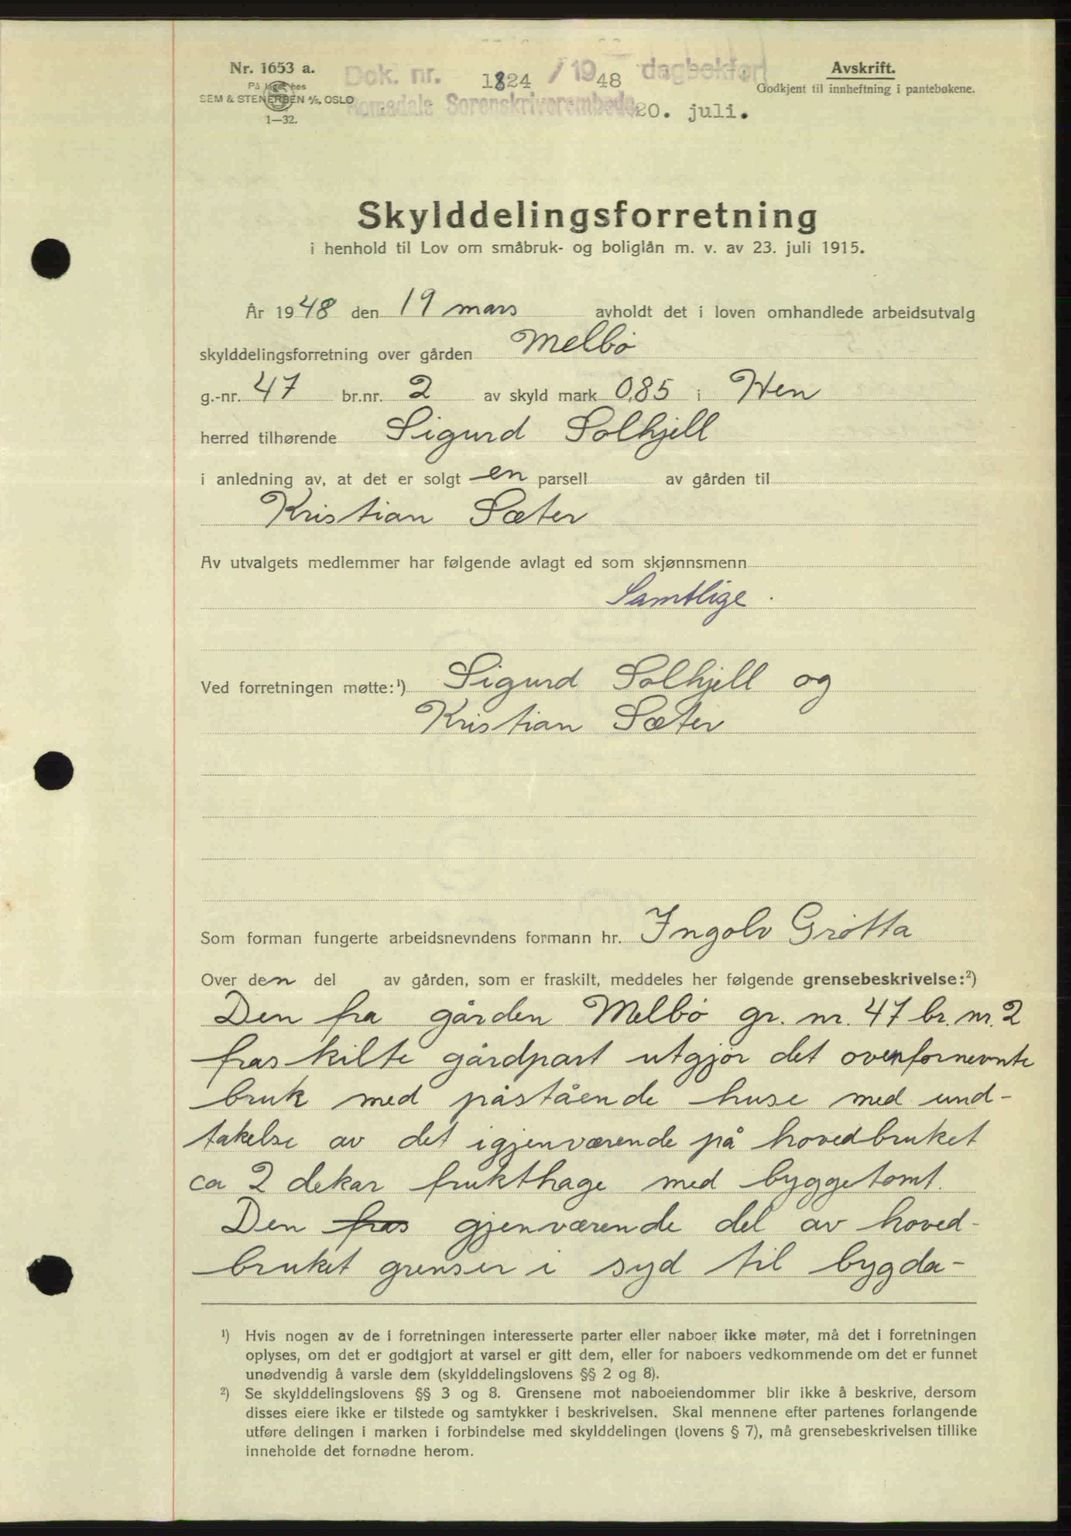 Nr. 1653 a.
På lager hes
SEM & STENERSEN A/S, OSLO
1—32.
Dok. nr. 1824 / 1948 dagbokført
Romsdals Sorenskriverembede 20. juli.
Avskrift.
Godkjent til innheftning i pantebøkene.
Skylddelingsforretning
i henhold til Lov om småbruk- og boliglån m. v. av 23. juli 1915.
År 1948 den 19 mars avholdt det i loven omhandlede arbeidsutvalg
skylddelingsforretning over gården Melbö
g.-nr. 47 br.nr. 2 av skyld mark 0,85 i Hen
herred tilhørende Sigurd Solhjell
i anledning av, at det er solgt en parsell av gården til
Kristian Sæter
Av utvalgets medlemmer har følgende avlagt ed som skjønnsmenn
Samtlige.
Ved forretningen møtte:¹) Sigurd Solhjell og
Kristian Sæter
Som forman fungerte arbeidsnevndens formann hr. Ingolv Grötta
Over den del av gården, som er fraskilt, meddeles her følgende grensebeskrivelse:²)
Den fra gården Melbö gr. nr. 47 br. nr. 2
fraskilte gårdpart utgjör det ovenfornevnte
bruk med påstående huse med und-
takelse av det igjenværende på hovedbruket
ca 2 dekar frukthage med byggetomt.
Den fras gjenværende del av hoved-
bruket grenser i syd til bygda-
¹) Hvis nogen av de i forretningen interesserte parter eller naboer ikke møter, må det i forretningen
oplyses, om det er godtgjort at varsel er gitt dem, eller for naboers vedkommende om det er funnet
unødvendig å varsle dem (skylddelingslovens §§ 2 og 8).
²) Se skylddelingslovens §§ 3 og 8. Grensene mot naboeiendommer blir ikke å beskrive, dersom
disses eiere ikke er tilstede og samtykker i beskrivelsen. Skal mennene efter partenes forlangende
utføre delingen i marken i forbindelse med skylddelingen (lovens § 7), må grensebeskrivelsen tillike
inneholde det fornødne herom.